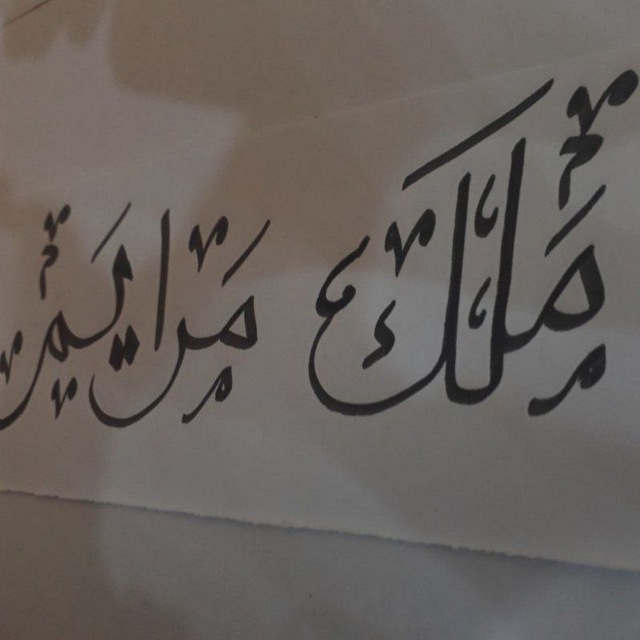 مَلَك مَرايَم